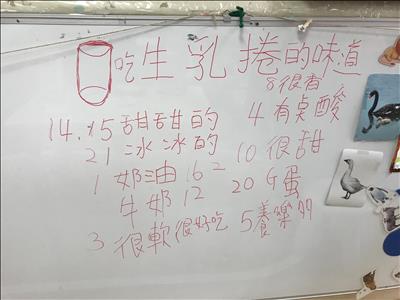 吃生乳捲的味道
8很香
14.15甜甜的
4有臭酸
21冰冰的
10很甜
1奶油16 2
牛奶12
20G蛋
3很軟很好吃
5養樂多